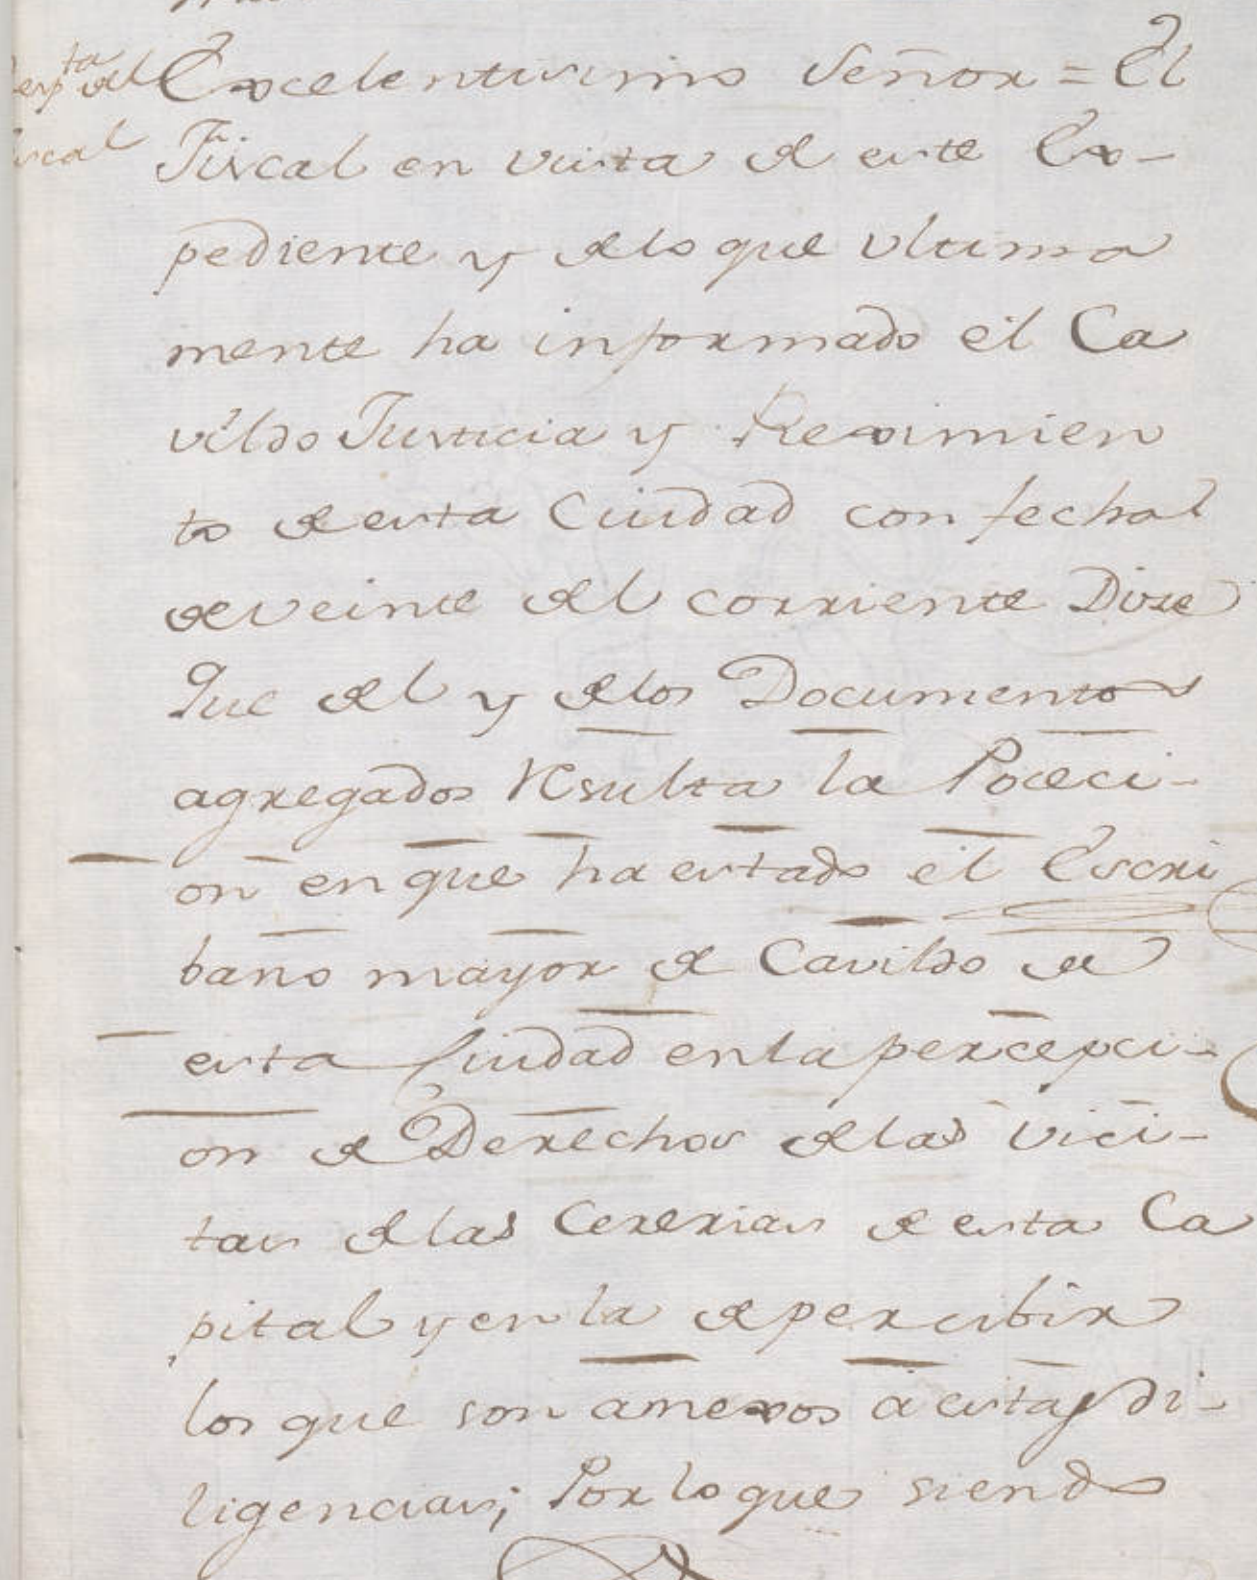 ta
del
cal
Excelentissimo Señor = El
Fiscal en vista de este Ex-
pediente y delo que ultima
mente ha informado el Ca
vildo Justicia y Reximien
to de esta Ciudad con fecha
de veinte del corriente Dize
Que del y delos Documentos
agregados Resulta la Poceci-
on en que ha estado el Escri
bano mayor de Cavildo de
esta Ciudad en la percepci-
on de Derechos delas vici-
tas delas Cererias de esta Ca
pital y en la de percibir
los que son amexos á estas di-
ligencias; Por lo que siendo